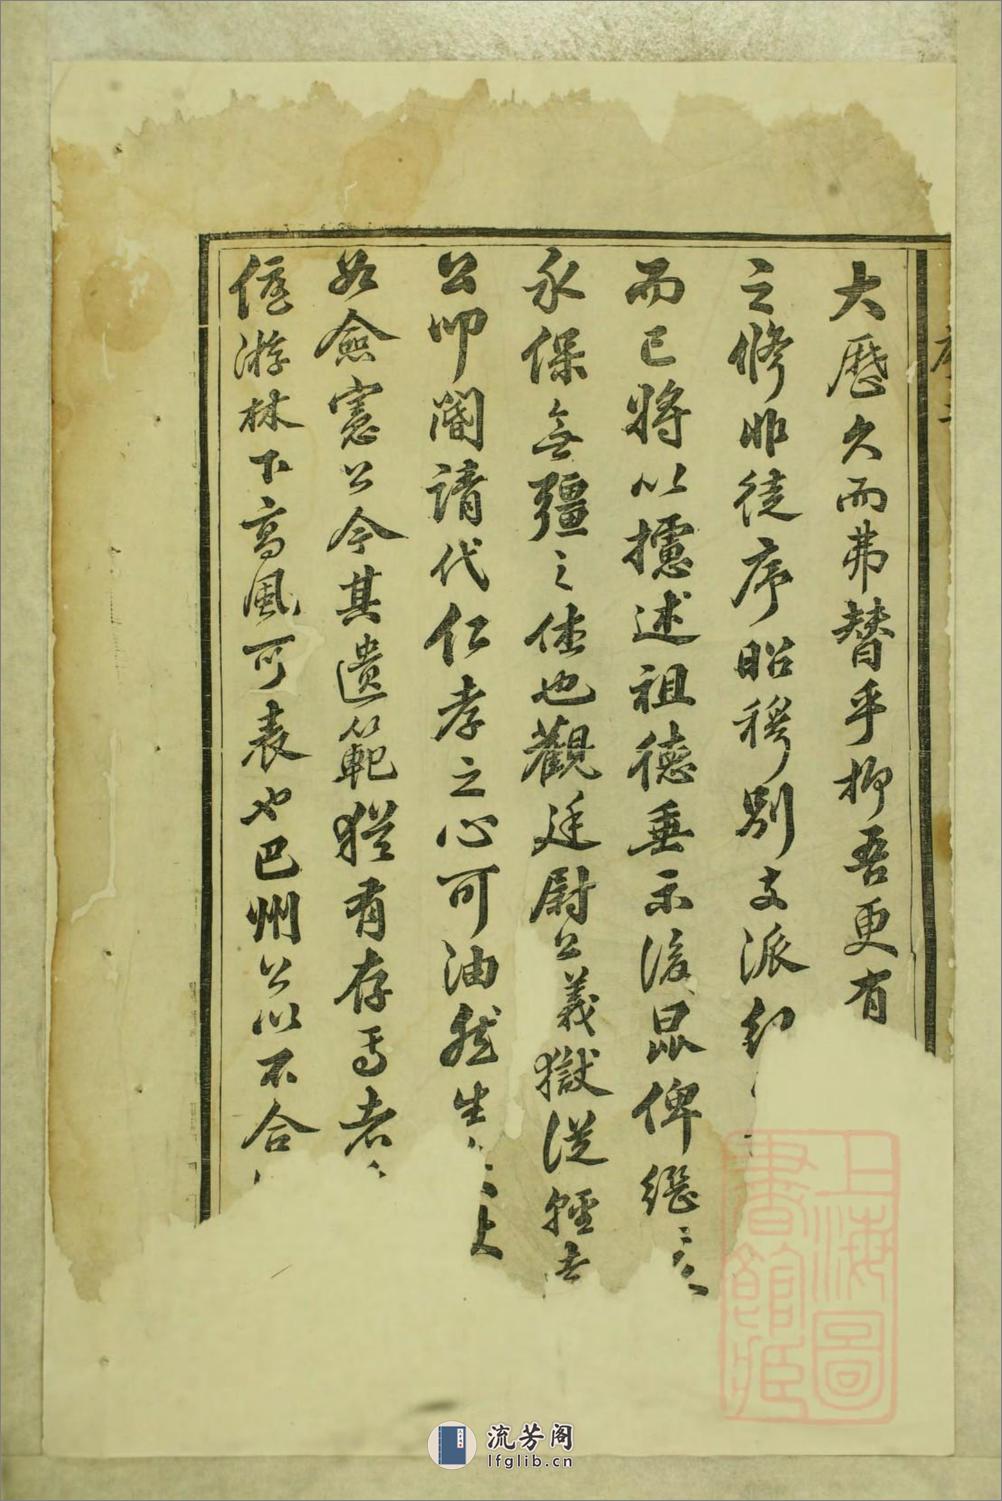 大歷久而弗替乎抑吾更有
之修非徒序昭穆別支派
而已將以攄述祖德垂示後昆俾繼
永保無疆之也觀廷尉公義獄從輕
公叩閽請代仁孝之心可油然生
如僉憲公今其遺範猶有存焉者
優游林下高風可表也巴州公以不合
上海圖書館藏
流芳阁
lfglib.cn